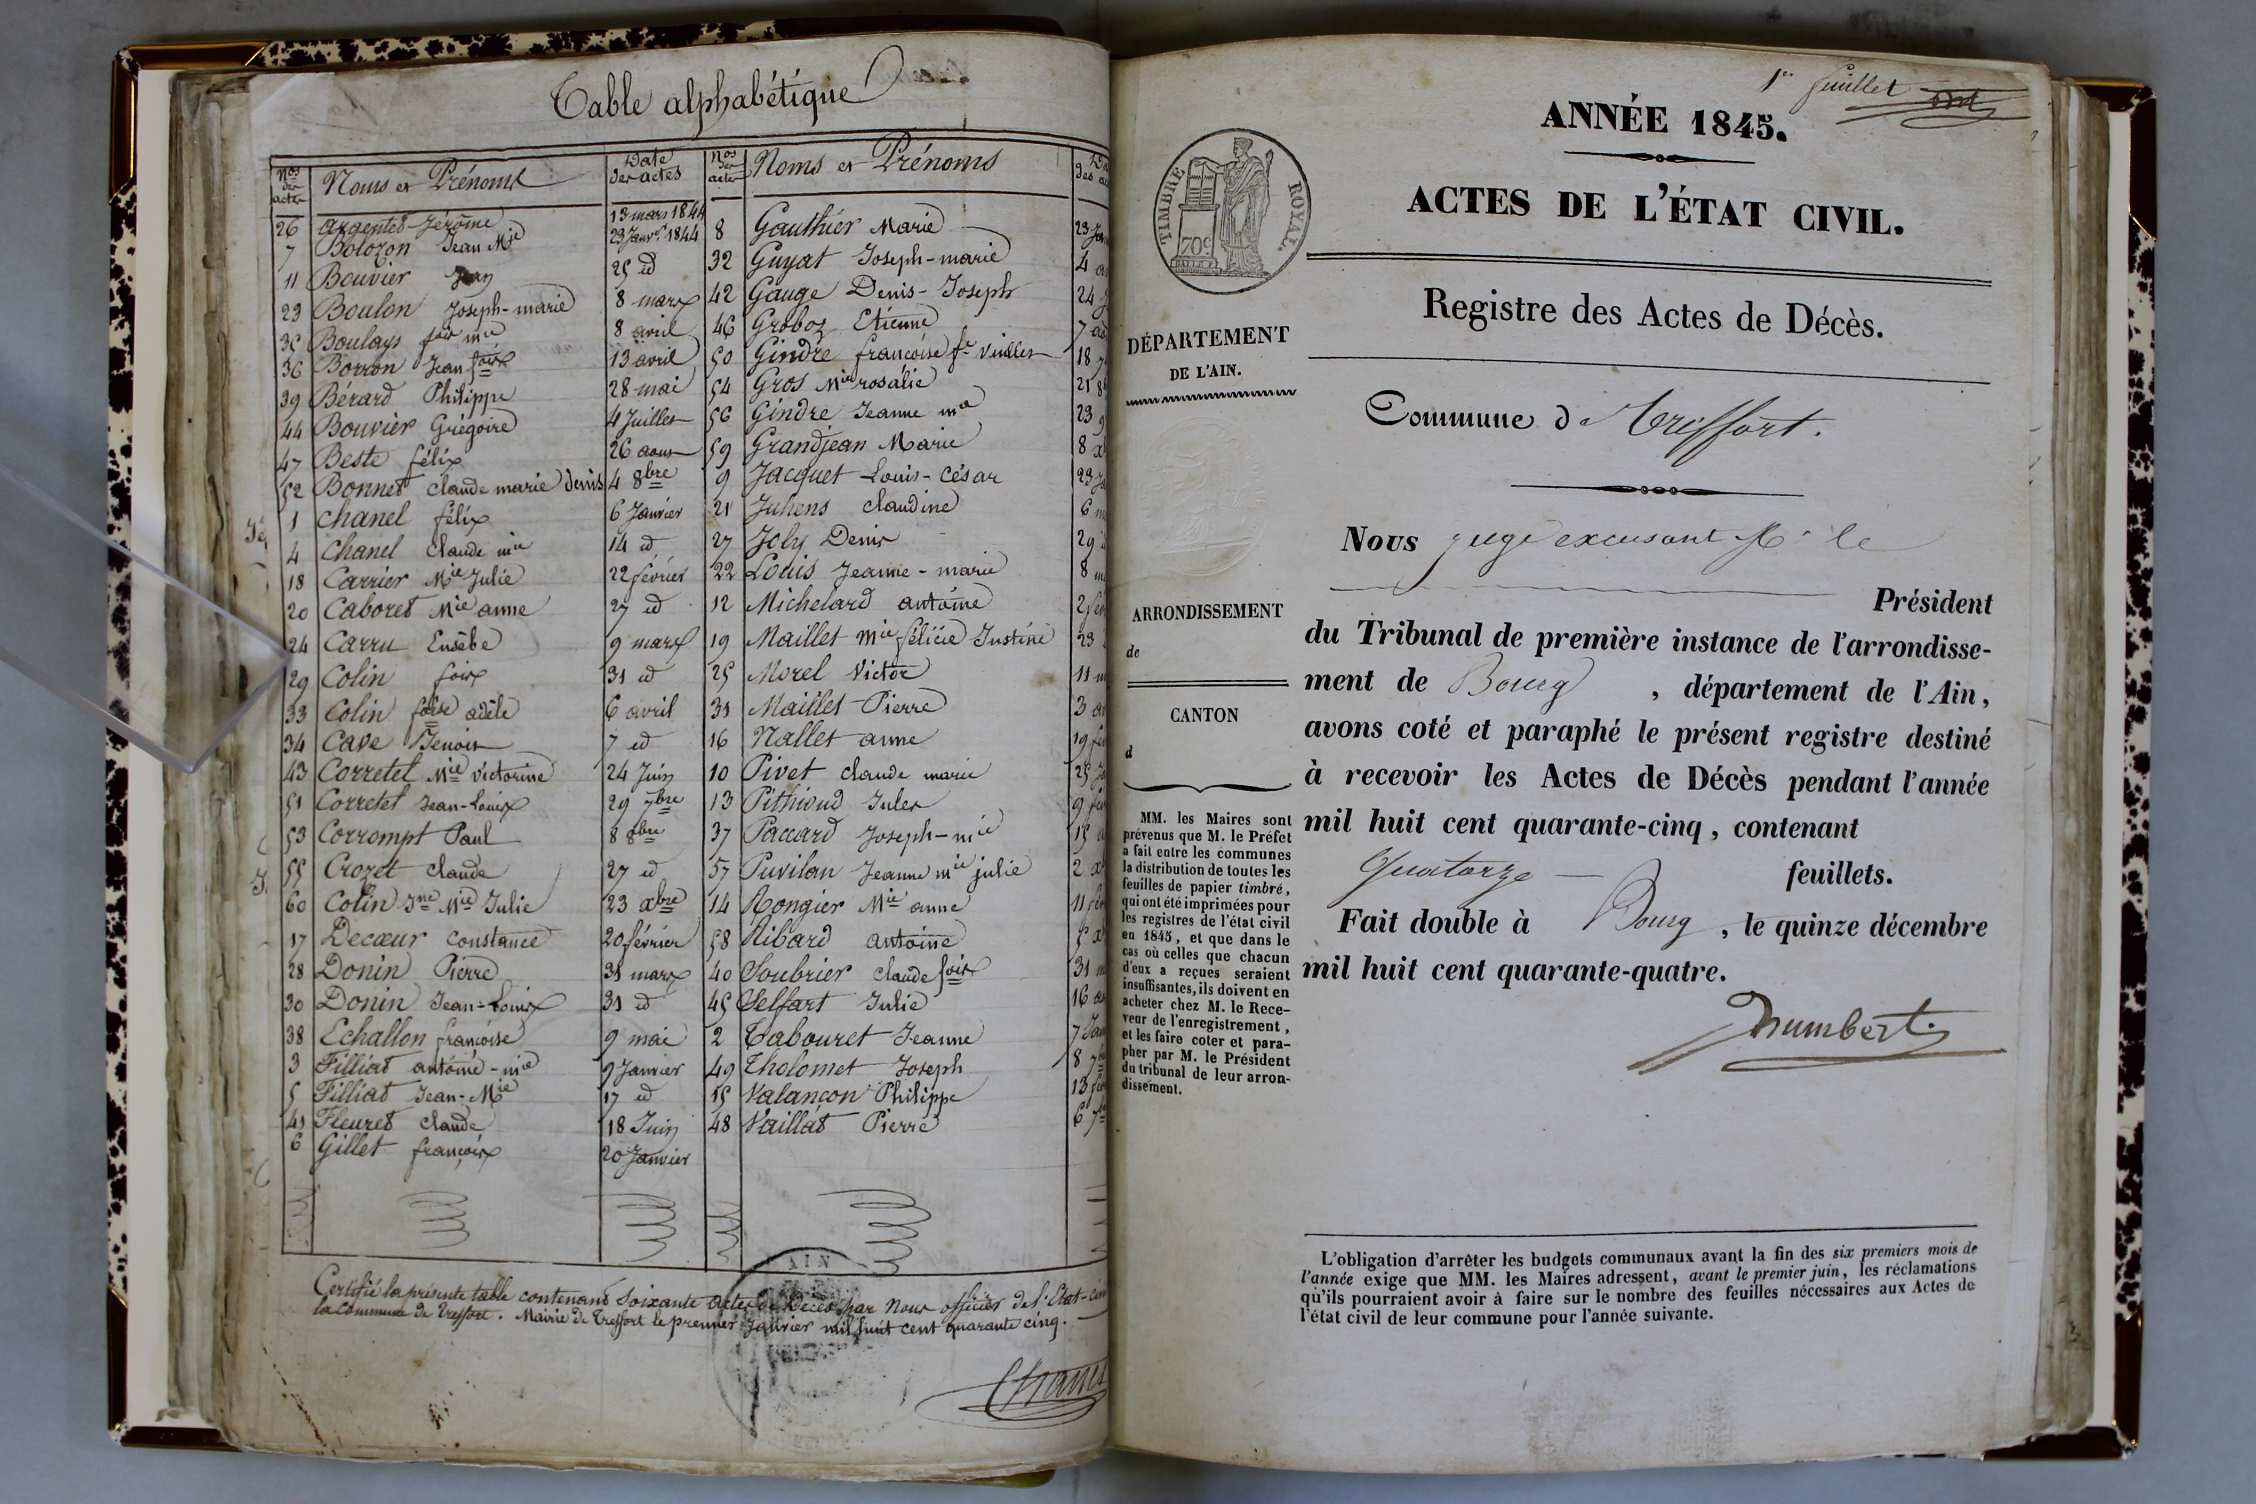 Table alphabétique
Nos des actes Noms et Prénoms Date des actes
26 Argentet Jérôme 13 mars 1844
7 Bolozon Jean Mie 23 Janvr 1844
11 Bouvier Jean 25 id
23 Boulon Joseph-marie 8 mars
35 Boulays fois mie 8 avril
36 Borron Jean fois 13 avril
39 Bérard Philippe 28 mai
44 Bouvier Grégoire 4 Juillet
47 Beste félix 26 aout
52 Bonnet claude marie denis 4 8bre
1 chanel félix 6 Janvier
4 chanel claude mie 14 id
18 Carrier Mie Julie 22 février
20 Caboret Mie anne 27 id
24 Carru Eusèbe 9 mars
29 Colin fois 31 id
33 Colin foise adèle 6 avril
34 Cave Benoit 7 id
43 Corretel Mie victorine 24 Juin
51 Corretel Jean-Louis 29 7bre
53 Corrompt Paul 8 8bre
55 Crozet claude 27 id
60 Colin Jne Mie Julie 23 xbre
17 Decœur Constance 20 février
28 Donin Pierre 31 mars
30 Donin Jean-Louis 31 id
38 Echallon françoise 9 mai
3 Filliat antoine-mie 9 Janvier
5 Filliat Jean-Mie 17 id
41 Fleuret claude 18 Juin
6 Gillet françois 20 Janvier
Nos des actes Noms et Prénoms
8 Gauthier Marie 23
32 Guyat Joseph-marie 4
42 Gauge Denis-Joseph 24
46 Groboz Etienne 7
50 Gindre françoise fe 18
54 Gros Mie rosalie 21
56 Gindre Jeanne mie 23
59 Grandjean Marie 8
9 Jacquet Louis-César 23
21 Juhens claudine 6
27 Joly Denis 29
22 Louis Jeanne-marie 8
12 Michelard antoine 2
19 Maillet mie félicie Justine 23
25 Morel Victor 11
31 Maillet Pierre 3
16 Nallet anne 19
10 Pivet claude marie 25
13 Pithioud Jules 9
37 Paccard Joseph-mie 15
57 Puvilan Jeanne mie julie 2
14 Rongier Mie anne 11
58 Ribard antoine 5
40 Soubrier claude fois 31
45 Selfart Julie 16
2 Tabouret Jeanne 7
49 Tholomet Joseph 8
15 Valançon Philippe 13
48 Vaillat Pierre 6
Certifié la présente table contenant Soixante actes de Décès par Nous officier de l'Etat-civil
la Commune de Treffort. Mairie de Treffort le premier Janvier mil huit cent quarante cinq.
AIN
1er feuillet
ANNÉE 1845.
ACTES DE L'ÉTAT CIVIL.
TIMBRE ROYAL
70c
Registre des Actes de Décès.
DÉPARTEMENT
DE L'AIN.
Commune de Treffort.
Nous juge excusant Mr le
Président
du Tribunal de première instance de l'arrondisse-
ment de Bourg, département de l'Ain,
avons coté et paraphé le présent registre destiné
à recevoir les Actes de Décès pendant l'année
mil huit cent quarante-cinq, contenant
Quatorze feuillets.
Fait double à Bourg, le quinze décembre
mil huit cent quarante-quatre.
Humbert
ARRONDISSEMENT
de
CANTON
d
MM. les Maires sont
prévenus que M. le Préfet
a fait entre les communes
la distribution de toutes les
feuilles de papier timbré,
qui ont été imprimées pour
les registres de l'état civil
en 1845, et que dans le
cas où celles que chacun
d'eux a reçues seraient
insuffisantes, ils doivent en
acheter chez M. le Rece-
veur de l'enregistrement,
et les faire coter et para-
pher par M. le Président
du tribunal de leur arron-
dissement.
L'obligation d'arrêter les budgets communaux avant la fin des six premiers mois de
l'année exige que MM. les Maires adressent, avant le premier juin, les réclamations
qu'ils pourraient avoir à faire sur le nombre des feuilles nécessaires aux Actes de
l'état civil de leur commune pour l'année suivante.